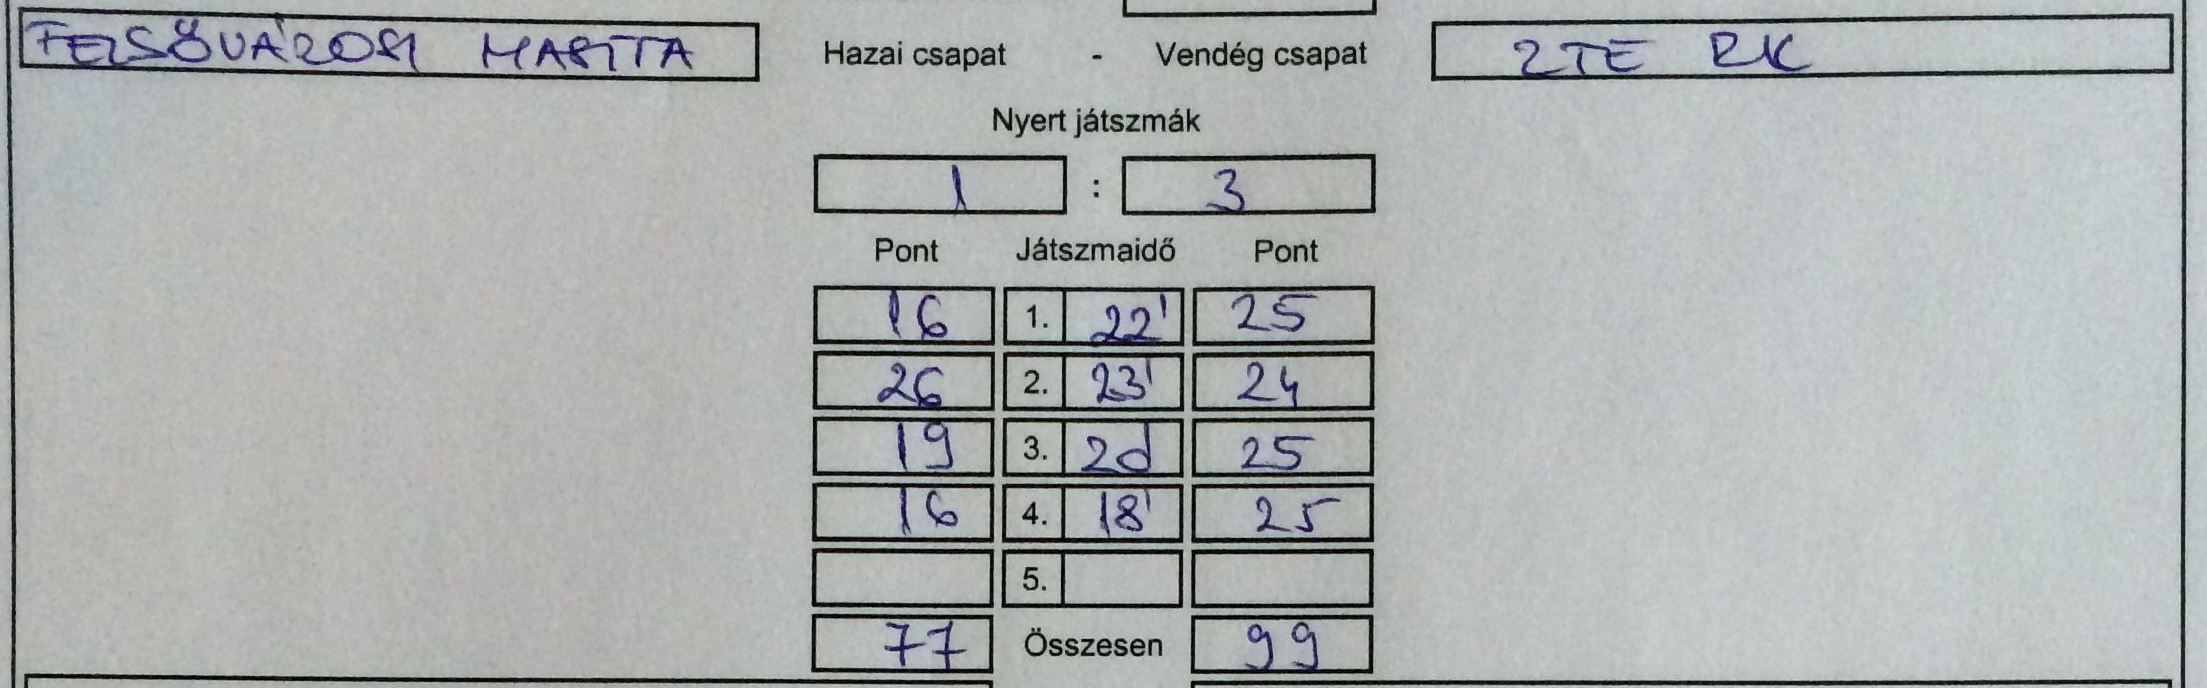 FELSŐVÁROSI MARITA Hazai csapat - Vendég csapat ZTE RK
Nyert játszmák
1 : 3
Pont Játszmaidő Pont
16 1. 22' 25
26 2. 23' 24
19 3. 25
16 4. 18' 25
5.
77 Összesen 99